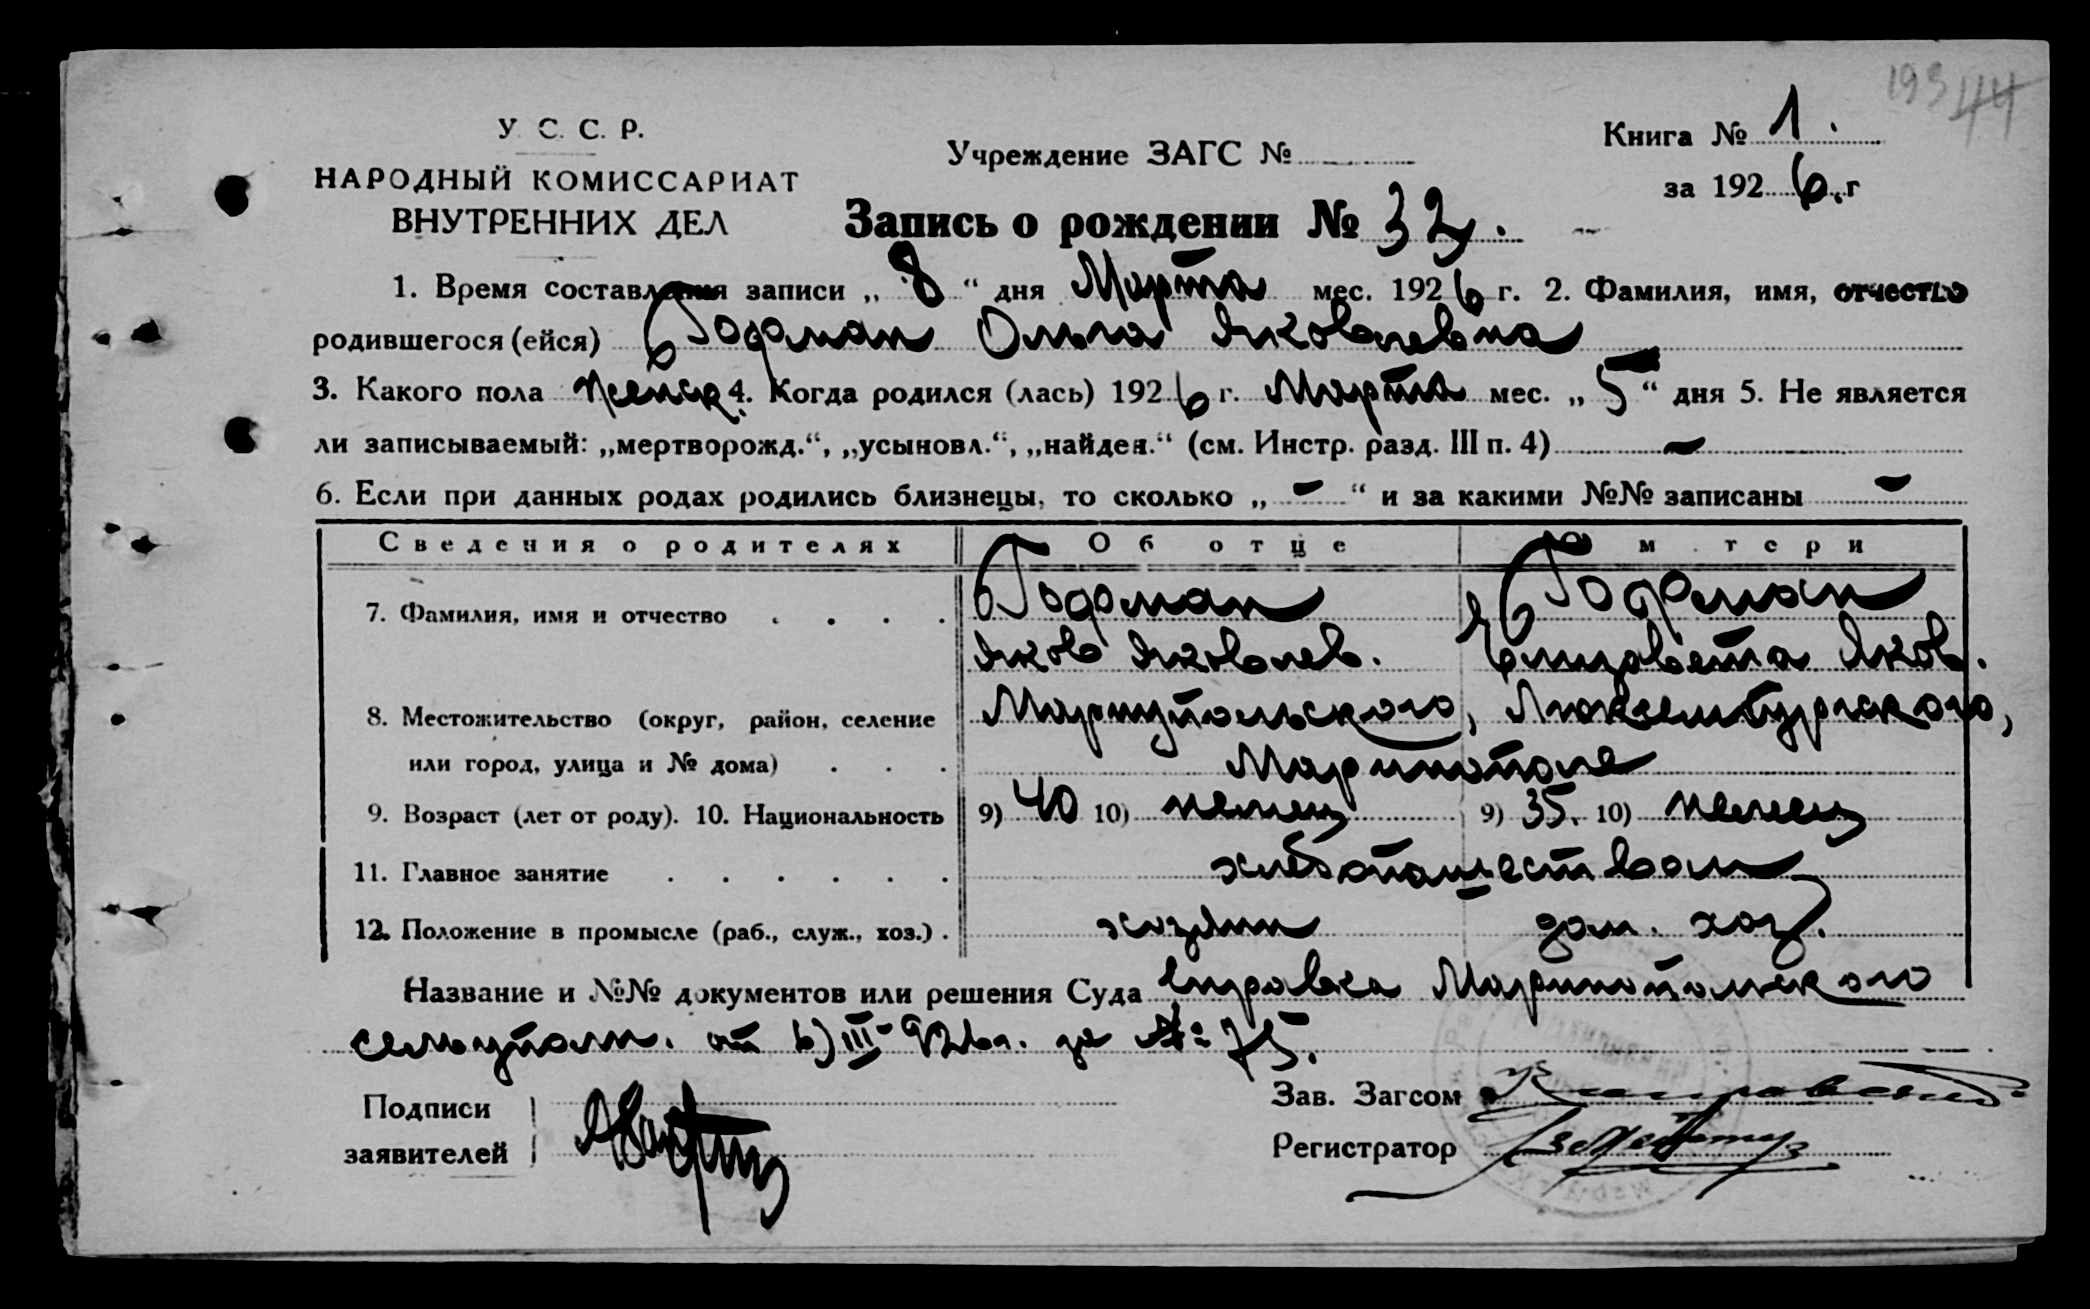 193 44
У. С. С. Р.
НАРОДНЫЙ КОМИССАРИАТ
ВНУТРЕННИХ ДЕЛ
Учреждение ЗАГС №
Книга № 1.
за 1926 г
Запись о рождении № 32.
1. Время составления записи „8“ дня Марта мес. 1926 г. 2. Фамилия, имя, отчество
родившегося (ейся) Гофман Ольга Яковлевна
3. Какого пола женск 4. Когда родился (лась) 1926 г. Марта мес. „5“ дня 5. Не является
ли записываемый: „мертворожд.“, „усыновл.“, „найден.“ (см. Инстр. разд. III п. 4) –
6. Если при данных родах родились близнецы, то сколько „–“ и за какими №№ записаны –
Сведения о родителях Об отце О матери
7. Фамилия, имя и отчество Гофман Гофман
Яков Яковлев. Елизавета Яков.
8. Местожительство (округ, район, селение Мариупольского, Люксембургского,
или город, улица и № дома) Мариинополе
9. Возраст (лет от роду). 10. Национальность 9) 40 10) немец 9) 35. 10) немец
11. Главное занятие хлебопашеством
12. Положение в промысле (раб., служ., хоз.) хозяин дом. хоз.
Название и №№ документов или решения Суда Справка Маринопольского
сельуполн. от 6/III-926г. за №: 75.
Подписи
заявителей
Зав. Загсом
Регистратор